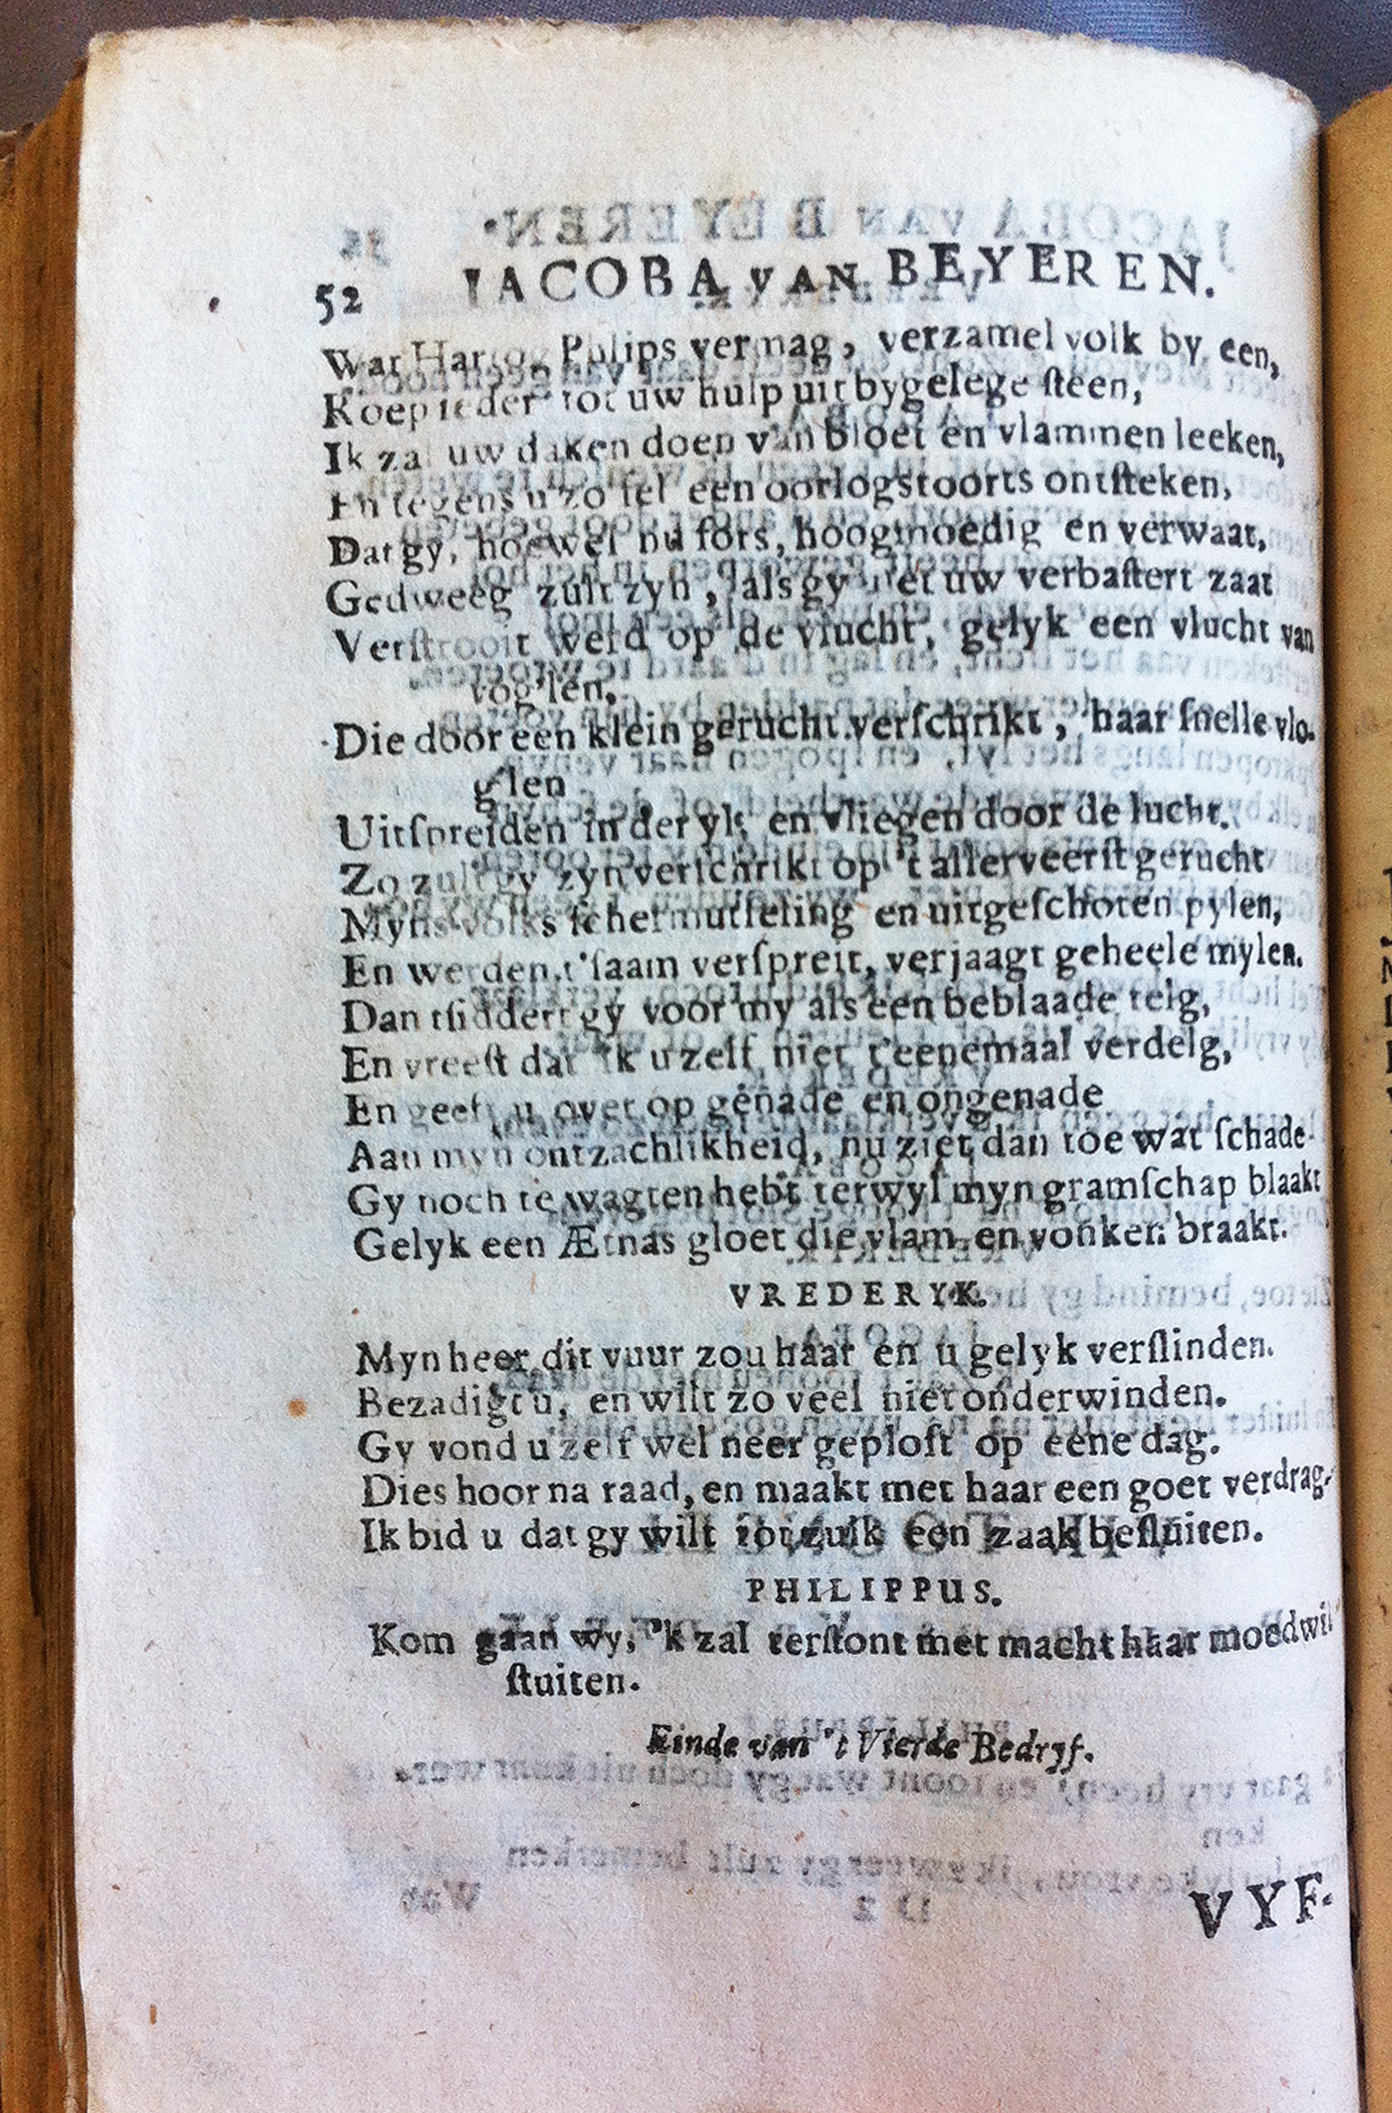 52 JACOBA VAN BEYEREN.
Wat Hartog Philips vermag, verzamel volk by een,
Roep ieder tot uw hulp uit bygelege steen,
Ik zal uw daken doen van bloet en vlammen leeken,
En tegens u zo fel een oorlogstoorts ontsteken,
Dat gy, hoewel nu fors, hoogmoedig en verwaat,
Gedweeg zult zyn, als gy met uw verbastert zaat
Verstrooit werd op de vlucht, gelyk een vlucht van
vog'len,
Die door een klein gerucht verschrikt, haar snelle vlo-
g'len
Uitspreiden in der yl, en vliegen door de lucht.
Zo zult gy zyn verschrikt op 't allerveerst gerucht
Myns volks schermutseling en uitgeschoten pylen,
En werden t'saam verspreit, verjaagt geheele mylen.
Dan tsiddert gy voor my als een beblaade telg,
En vreest dat ik u zelf niet t'eenemaal verdelg,
En geeft u over op genade en ongenade
Aan myn ontzachlikheid, nu ziet dan toe wat schade
Gy noch te wagten hebt terwyl myn gramschap blaakt
Gelyk een Ætnas gloet die vlam en vonken braakt.
VREDERYK.
Myn heer dit vuur zou haar en u gelyk verslinden.
Bezadigt u, en wilt zo veel niet onderwinden.
Gy vond u zelf wel neer geploft op eene dag.
Dies hoor na raad, en maakt met haar een goet verdrag.
Ik bid u dat gy wilt tot zulk een zaak besluiten.
PHILIPPUS.
Kom gaan wy, 'k zal terstont met macht haar moedwil
stuiten.
Einde van 't Vierde Bedryf.
VYF-